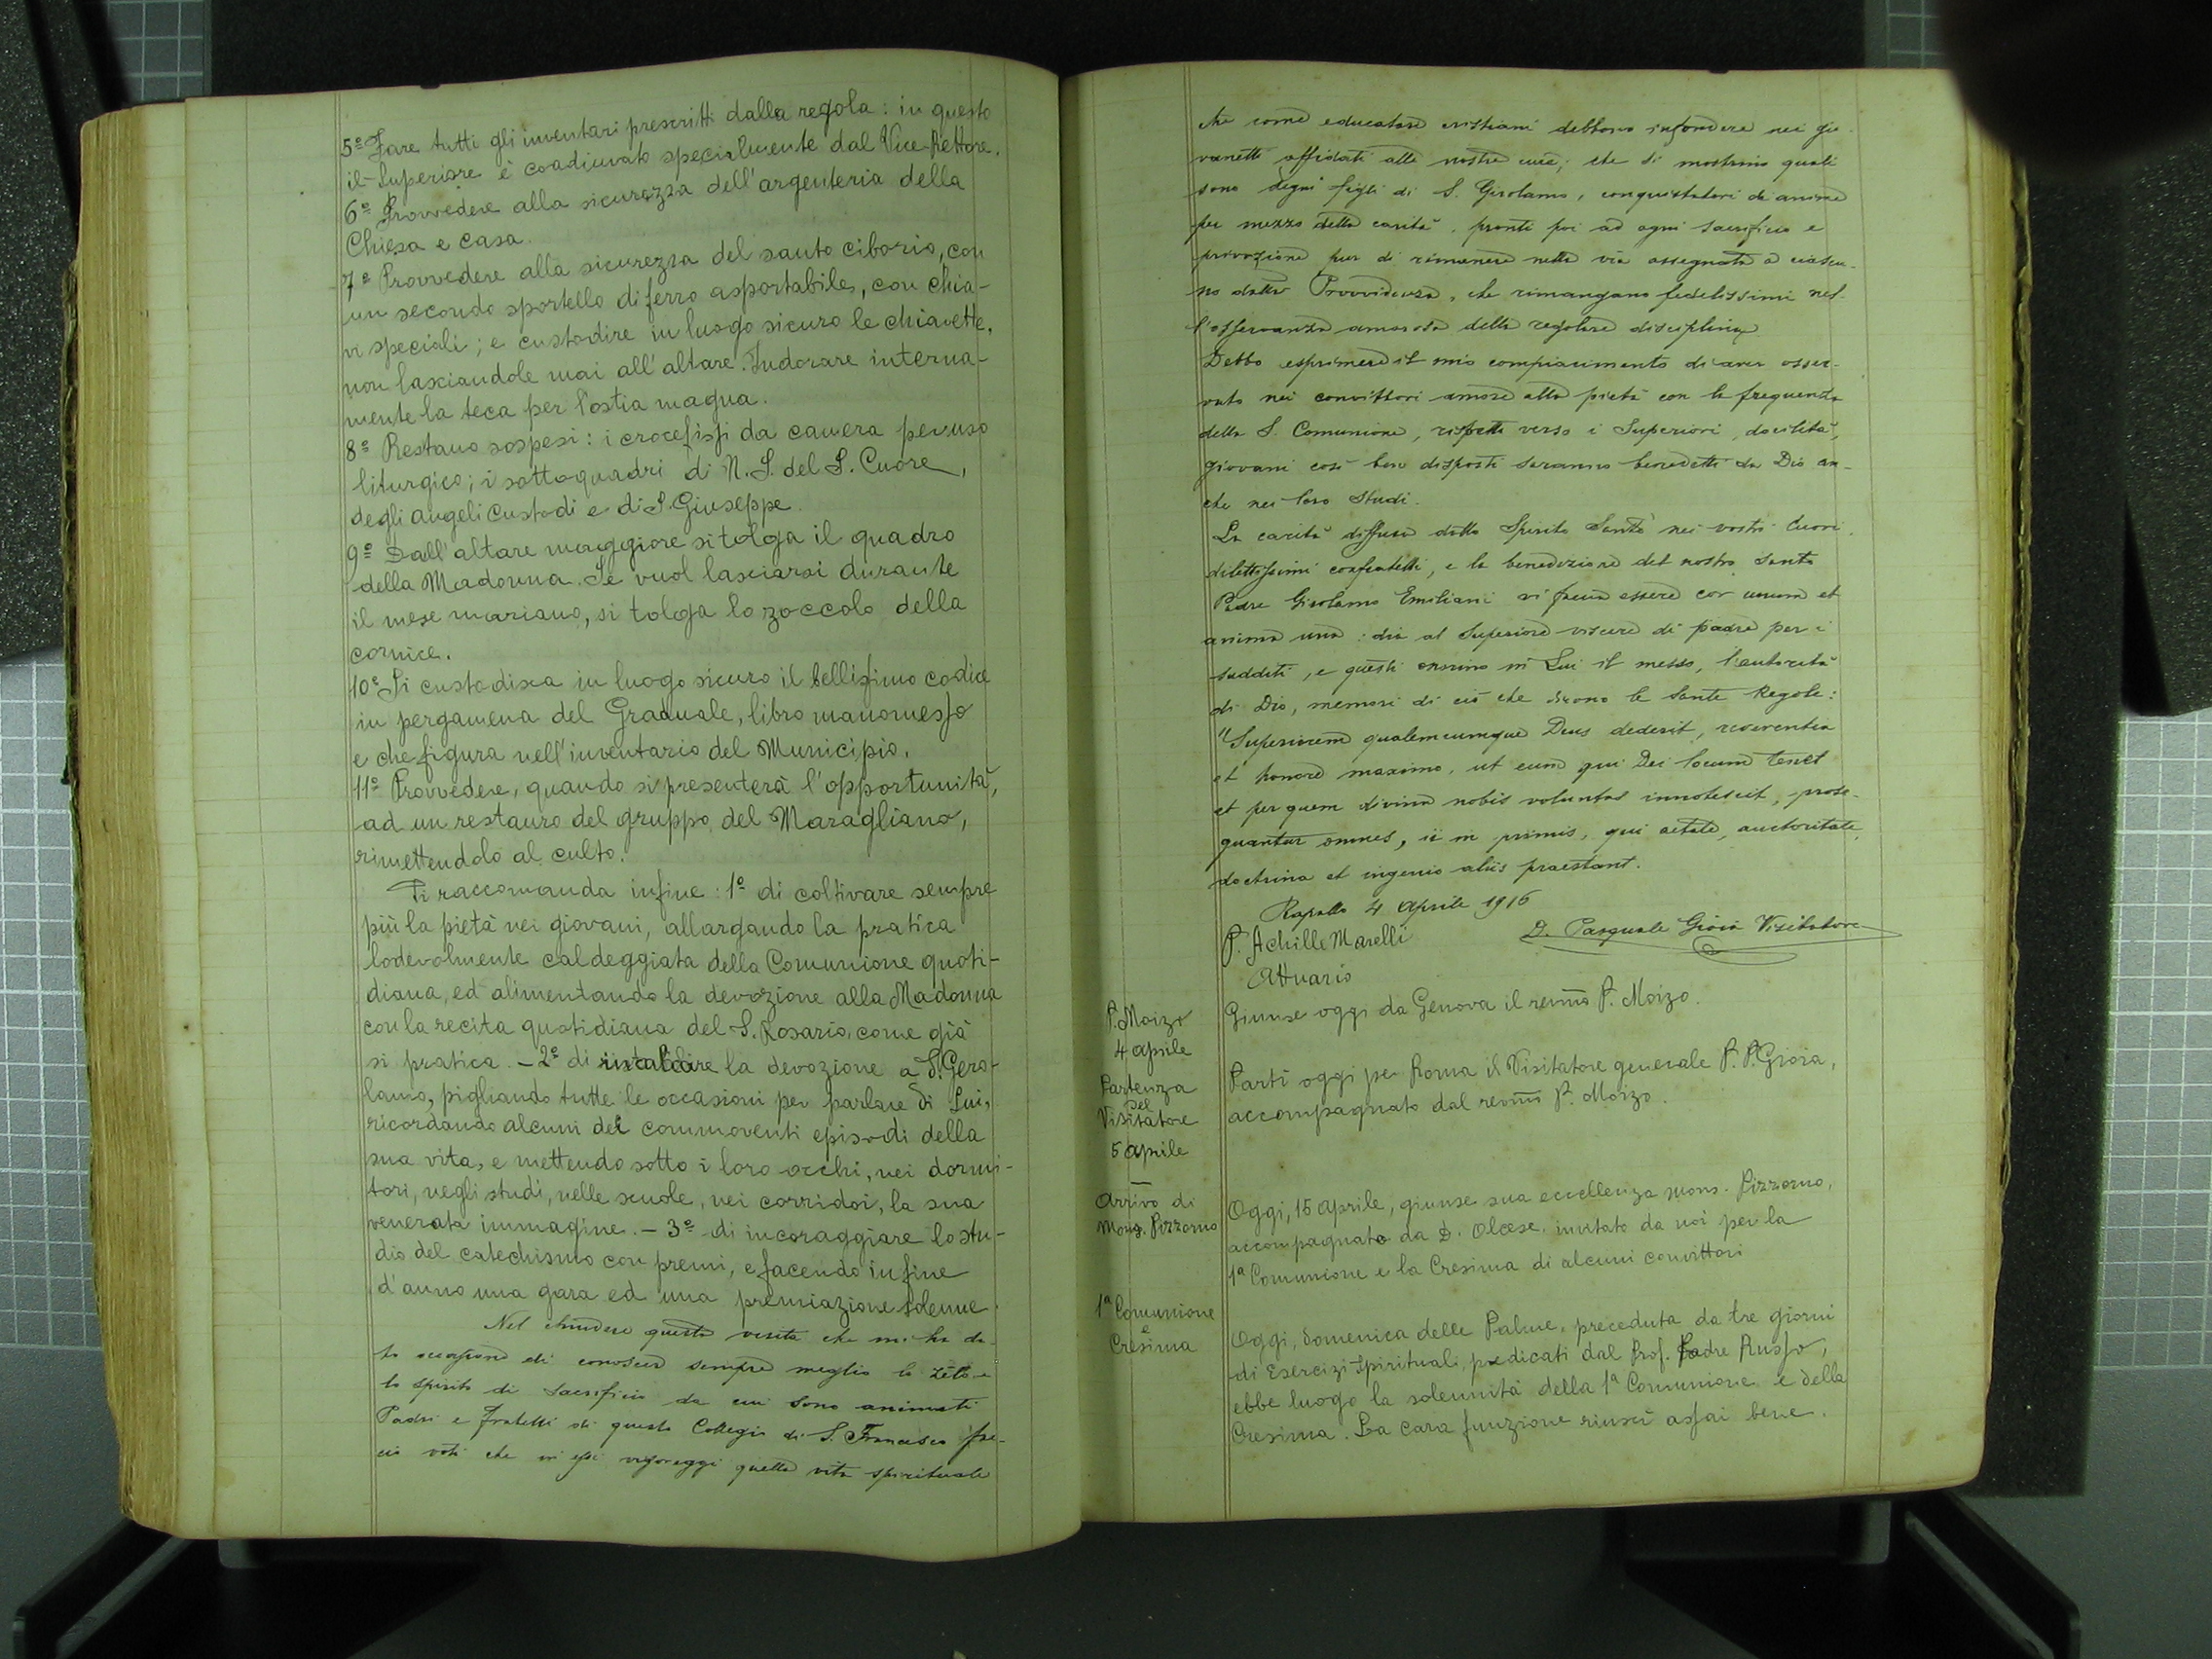 5º Fare tutti gli inventari prescritti dalla regola: in questo
il Superiore è coadiuvato specialmente dal Vice-Rettore.
6º Provvedere alla sicurezza dell'argenteria della
Chiesa e casa.
7º Provvedere alla sicurezza del santo ciborio, con
un secondo sportello di ferro asportabile, con chia-
vi speciali; e custodire in luogo sicuro le chiavette,
non lasciandole mai all'altare. Indorare interna-
mente la teca per l'ostia magna.
8º Restano sospesi: i crocefissi da camera per uso
liturgico; i sottoquadri di N. S. del S. Cuore,
degli angeli Custodi e di S. Giuseppe.
9º Dall'altare maggiore si tolga il quadro
della Madonna. Se vuol lasciarsi durante
il mese mariano, si tolga lo zoccolo della
cornice.
10º Si custodisca in luogo sicuro il bellissimo codice
in pergamena del Graduale, libro manomesso
e che figura nell'inventario del Municipio.
11º Provvedere, quando si presenterà l'opportunità,
ad un restauro del gruppo del Maragliano,
rimettendolo al culto.
Si raccomanda infine: 1º di coltivare sempre
più la pietà nei giovani, allargando la pratica
lodevolmente caldeggiata della Comunione quoti-
diana, ed alimentando la devozione alla Madonna
con la recita quotidiana del S. Rosario, come già
si pratica. - 2º di la devozione a S. Gero-
lamo, pigliando tutte le occasioni per parlare di Lui,
ricordando alcuni dei commoventi episodi della
sua vita, e mettendo sotto i loro occhi, nei dormi-
tori, negli studi, nelle scuole, nei corridoi, la sua
venerata immagine. - 3º di incoraggiare lo stu-
dio del catechismo con premi, e facendo in fine
d'anno una gara ed una premiazione solenne.
Nel chiudere questa visita che mi ha da-
to occasione di conoscere sempre meglio lo zelo e
lo spirito di sacrificio da cui sono animati
Padri e Fratelli di questo Collegio di S. Francesco fac-
cio voti che in essi vigoreggi quella vita spirituale
che come educatori cristiani debbono infondere nei gio-
vanetti affidati alle nostre cure; che si mostrino quali
sono degni figli di S. Girolamo, conquistatori di anime
per mezzo della carità, pronti poi ad ogni sacrificio e
privazione pur di rimanere nella via assegnata a ciascu-
no dalla Provvidenza, che rimangano fedelissimi nel-
l'osservanza amorosa della regolare disciplina.
Debbo esprimere il mio compiacimento di aver osser-
vato nei convittori amore alla pietà con la frequenza
della S. Comunione, rispetto verso i Superiori, docilità,
giovani così ben disposti saranno benedetti da Dio an-
che nei loro studi.
La carità diffusa dallo Spirito Santo nei vostri Cuori,
dilettissimi confratelli, e la benedizione del nostro Santo
Padre Girolamo Emiliani vi faccia essere cor unum et
anima una: dia al Superiore viscere di padre per i
sudditi, e questi onorino in Lui il messo, l'autorità
di Dio, memori di ciò che dicono le Sante Regole:
"Superiorem qualemcumque Deus dederit, reverentia
et honore maximo, ut eum qui Dei locum tenet
et per quem divina nobis voluntas innotescit, prose-
quantur omnes, ii in primis, qui aetate, auctoritate,
doctrina et ingenio aliis praestant.
Rapallo 4 Aprile 1916
D. Pasquale Gioia Visitatore
P. Achille Marelli
Attuario
P. Moizo
4 aprile
Giunse oggi da Genova il revmo P. Moizo.
Partenza
del
Visitatore
5 aprile
Partì oggi per Roma il Visitatore generale P. P. Gioia,
accompagnato dal revmo P. Moizo.
Arrivo di
Mons. Pizzorno
Oggi, 15 aprile, giunse sua eccellenza mons. Pizzorno,
accompagnato da D. Olcese, invitato da noi per la
1ª Comunione e la Cresima di alcuni convittori
1ª Comunione
e
Cresima
Oggi, domenica delle Palme, preceduta da tre giorni
di Esercizi Spirituali, predicati dal Prof. Padre Russo,
ebbe luogo la solennità della 1ª Comunione e della
Cresima. La cara funzione riuscì assai bene.